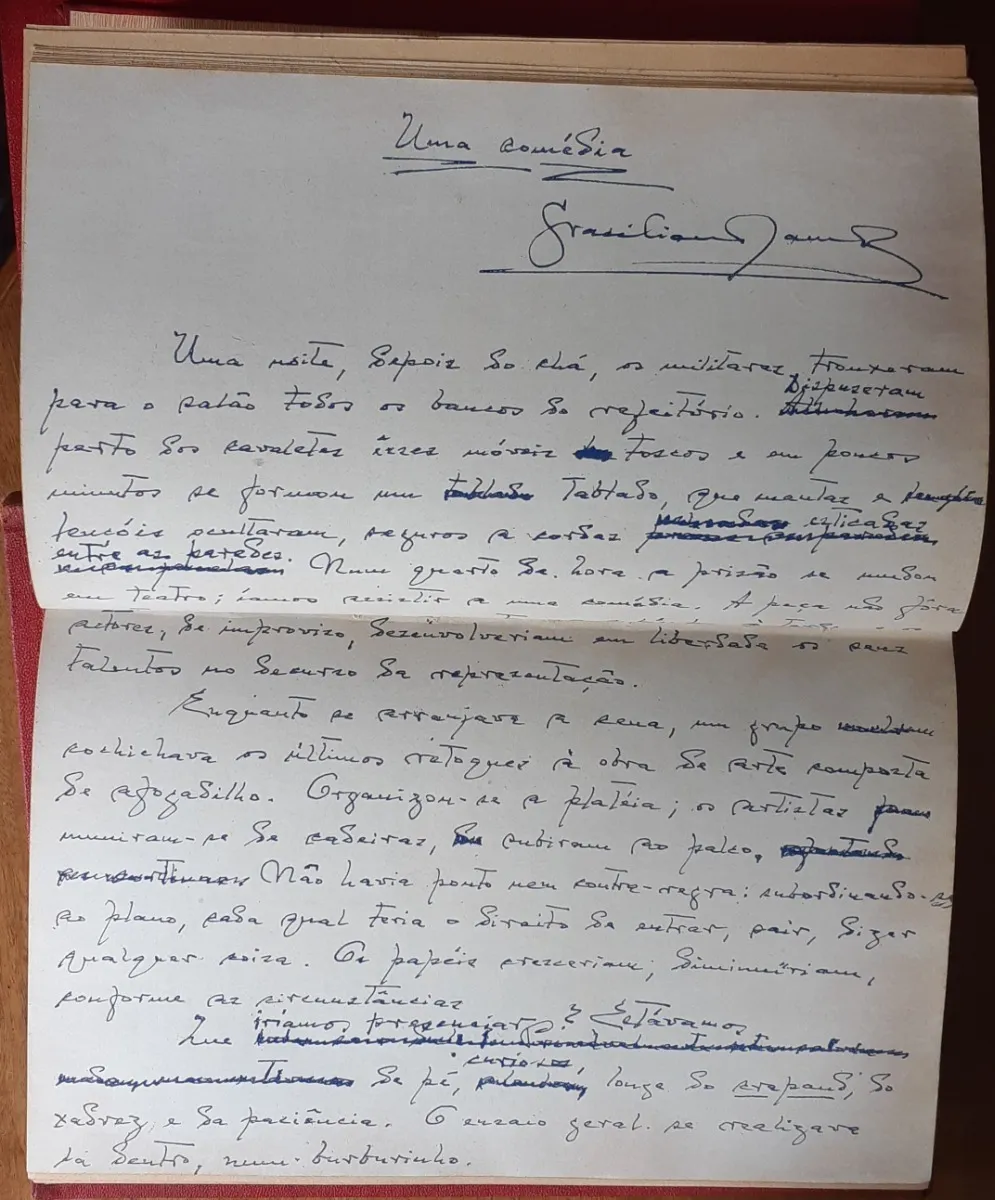 Uma comédia
Graciliano Ramos
Uma noite, depois do chá, os militares trouxeram
Dispuseram
para o salão todos os bancos do refeitório.
perto dos cavaletes êsses móveis toscos e em poucos
minutos se formou um tablado, que mantas e
esticadas
lençóis ocultaram, seguros a cordas
entre as paredes.
Num quarto de hora a prisão se mudou
em teatro; íamos assistir a uma comédia. A peça não fôra
actores, de improviso, desenvolveriam em liberdade os seus
talentos no decurso da representação.
Enquanto se arranjava a cena, um grupo
cochichava os últimos retoques à obra de arte composta
de afogadilho. Organizou-se a platéia; os artistas
muniram-se de cadeiras, subiram ao palco.
Não havia ponto nem contra-regra: subordinando-se
ao plano, cada qual teria o direito de entrar, sair, dizer
qualquer coisa. Os papéis cresceriam, diminuïriam,
conforme as circunstâncias
iríamos presenciar? Estávamos
Que
curiosos,
de pé, longe do crapaud, do
xadrez e da paciência. O ensaio geral se realizava
lá dentro, num burburinho.